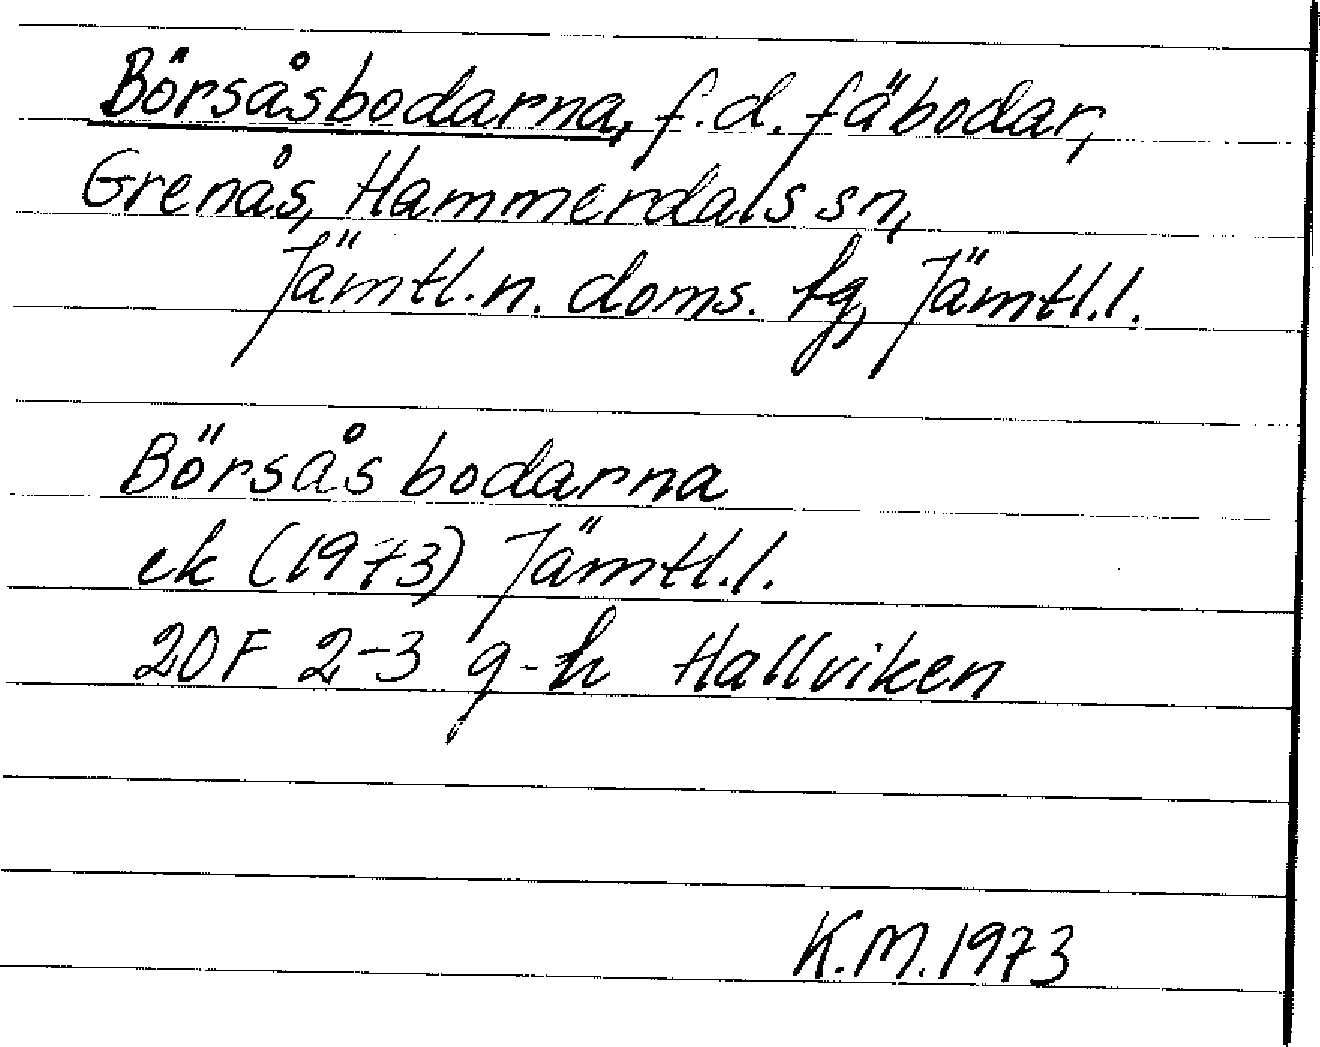 Börsåsbodarna, f.d. fäbodar,
Grenås, Hammerdals sn,
Jämtl. n. doms. tg, Jämtl. l.
Börsåsbodarna
ek (1973) Jämtl. l.
20F 2-3 g-h Hallviken
K.M. 1973